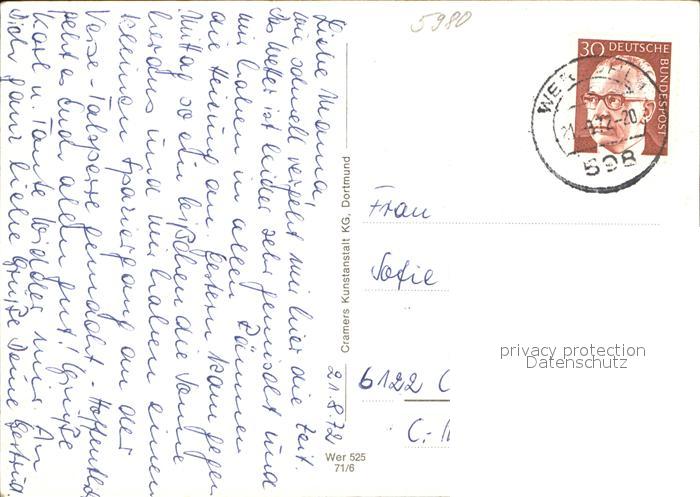 5980
30 DEUTSCHE BUNDESPOST
WERDOHL
21.8.72-20
598
21.8.72
Liebe Mama,
wie schnell vergeht mir hier die Zeit.
Das Wetter ist leider sehr gemischt und
wir haben in allen Räumen
die Heizung an. Gestern kam gegen
Mittag so ein bisschen die Sonne
heraus und wir haben einen
kleinen Spaziergang an der
Verse-Talsperre gemacht. Hoffentlich
geht es Euch allen gut! Grüße
Karl u. Tante wieder mir. An
Dich ganz liebe Grüße Deine Gertrud
Cramers Kunstanstalt KG, Dortmund
Wer 525
71/6
Frau
Sofie
6122
privacy protection
Datenschutz